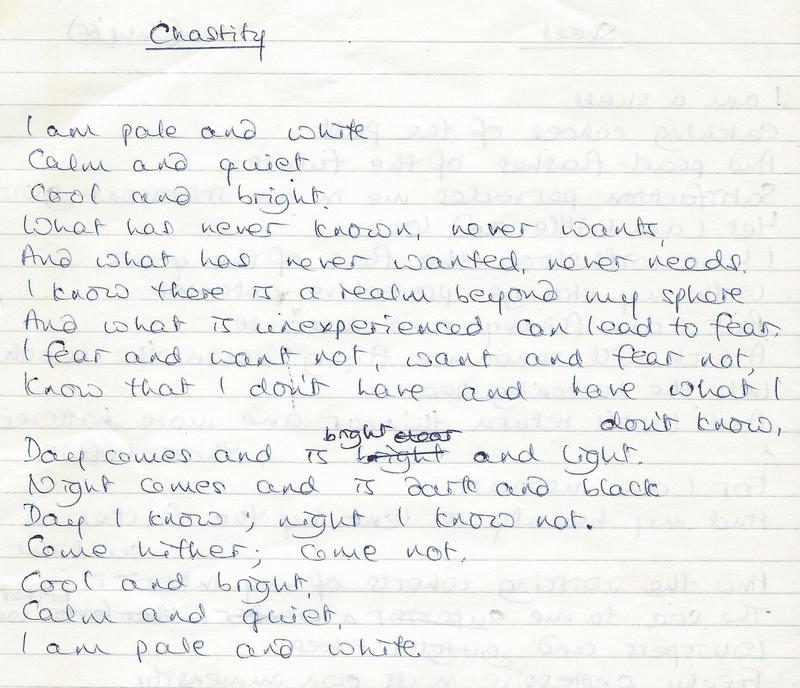 Chastity
I am pale and white
Calm and quiet
Cool and bright.
What has never known, never wants,
And what has never wanted, never needs.
I know there is a realm beyond my sphere
And what is unexperienced can lead to fear.
I fear and want not, want and fear not,
Know that I don't have and have what I
don't know,
bright clear
Day comes and is bright and light.
Night comes and is dark and black
Day I know; night I know not.
Come hither; come not,
Cool and bright,
Calm and quiet,
I am pale and white.